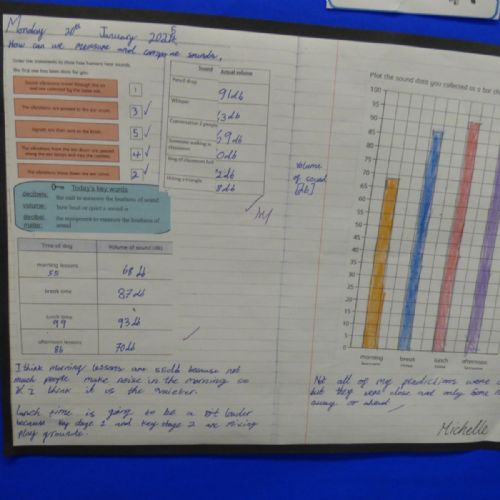 Monday 20th January 2025
How can we measure and compare sounds.
Order the statements to show how humans hear sounds.
The first one has been done for you.
Sound vibrations travel through the air
and are collected by the outer ear.
1
The vibrations are passed to the ear drum.
3
Signals are then sent to the brain.
5
The vibrations from the ear drum are passed
along the ear bones and into the cochlea.
4
The vibrations travel down the ear canal.
2
Sound Actual volume
Pencil drop
91db
Whisper
Conversation 2 people
Someone walking in
classroom
Ring of classroom bell
Hitting a triangle
Today's key words
decibels: the unit to measure the loudness of sound
volume: how loud or quiet a sound is
decibel
meter: the equipment to measure the loudness of
sound
Time of day Volume of sound (db)
morning lessons 68 db
55
break time 87db
lunch time 93db
99
afternoon lessons 70db
86
I think morning lessons are 55db because not
much people make noise in the morning so
I think it is the quieter.
lunch time is going to be a bit louder
because key stage 1 and key stage 2 are mixing
play grounds.
Plot the sound data you collected as a bar
Volume
of sound
(db)
100
95
90
85
80
75
70
65
60
55
50
45
40
35
30
25
20
15
10
5
0
morning break lunch afternoon
lessons time time lessons
Not all of my predictions were
but they were close and only some
away or ahead
Michelle